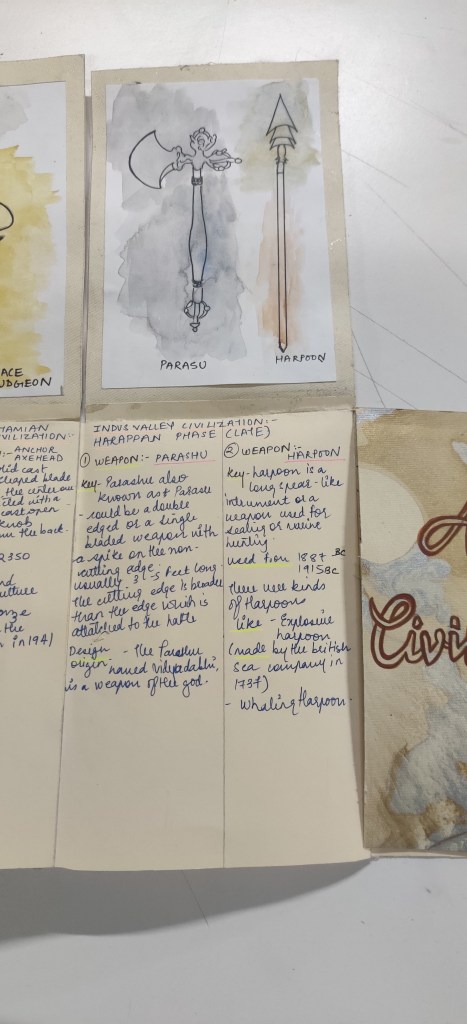 ACE
UDGEON
PARASU
HARPOON
TAMIAN
VILIZATION:-
:- ANCHOR
AXEHEAD
cast
blade
the centre
with a
open
knob
the back.
2350
nd
culture
onze
the
in 1941
INDUS VALLEY CIVILIZATION:-
HARAPPAN PHASE (LATE)
① WEAPON:- PARASHU
Key- Parashu also
known as Parasu
- could be a double
edged or a single
bladed weapon with
a spike on the non-
cutting edge.
usually 3-5 feet long.
The cutting edge is broader
than the edge which is
attatched to the hafts
Design - The Parashu
origin- named Vidyadabhi,
is a weapon of the god.
② WEAPON:-
HARPOON
Key- harpoon is a
long spear-like
intrument or a
weapon used for
sealing or
hunting.
used from 1887 BC
1915 BC
There were kinds
of Harpoons
like - Explosive
harpoon
(made by the british
sea company in
1737)
- Whaling Harpoon.
A
Civi